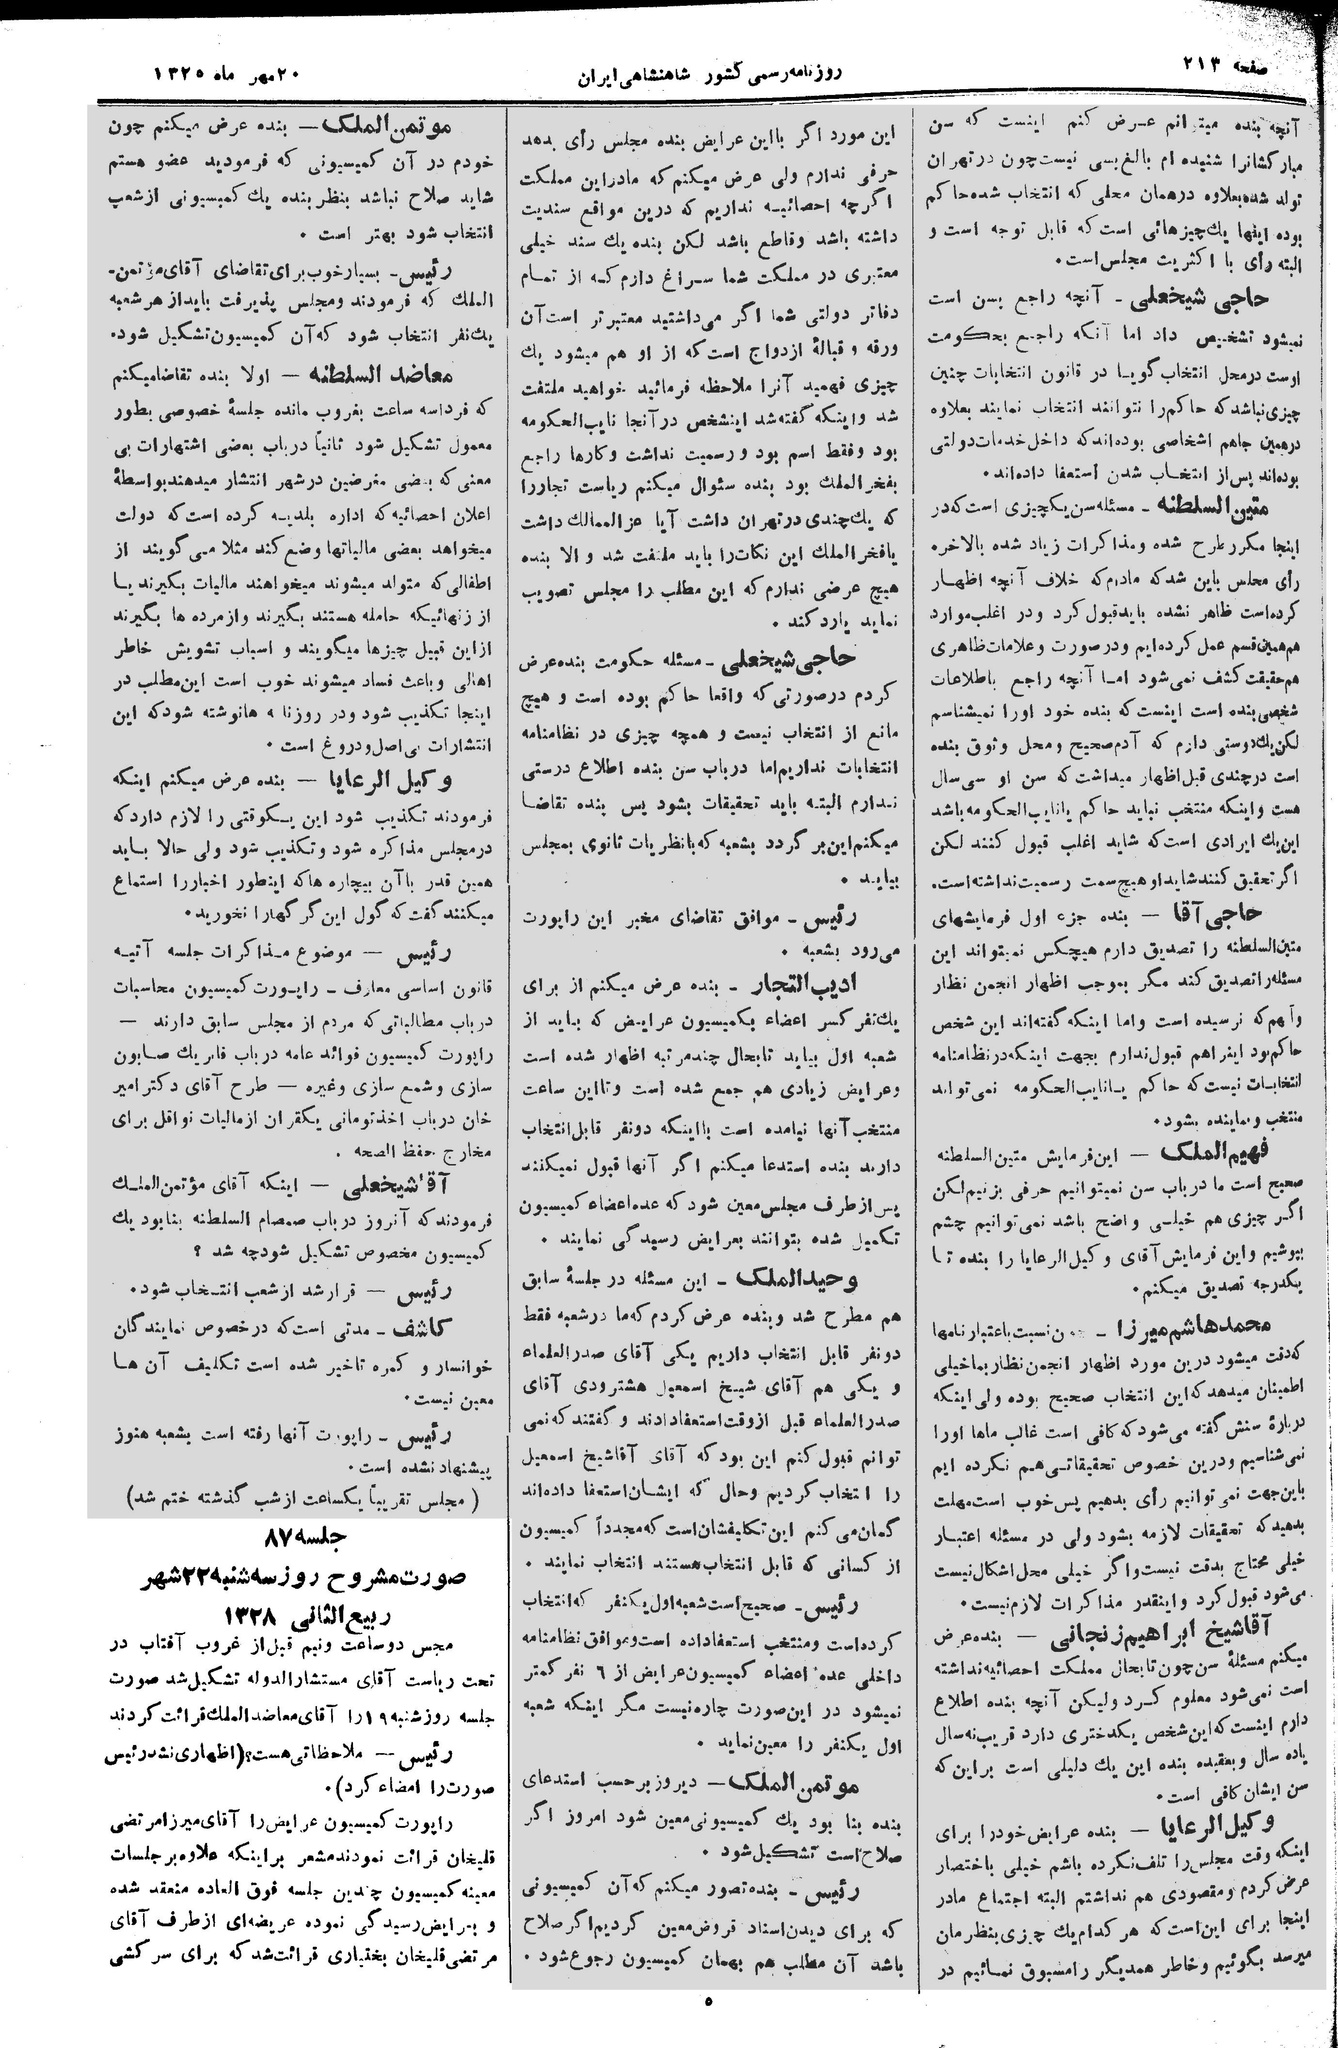 صفحه ۲۱۳
روزنامه رسمی کشور شاهنشاهی ایران
۲۰ مهر ماه ۱۳۲۵
آنچه بنده میتوانم عرض کنم اینست که سن
مبارکشانرا شنیده ام بالغ بر سی نیست چون در تهران
تولد شده بعلاوه درهمان محلی که انتخاب شده حاکم
بوده اینها یك چیزهائی است که قابل توجه است و
البته رأی با اکثریت مجلس است.
حاجی شیخعلی ـ آنچه راجع بسن است
نمیشود تشخیص داد اما آنکه راجع بحکومت
اوست درمحل انتخاب گویا در قانون انتخابات چنین
چیزی نباشد که حاکم را نتوانند انتخاب نمایند بعلاوه
درهمین جاهم اشخاصی بوده اند که داخل خدمات دولتی
بوده اند پس از انتخاب شدن استعفا داده اند.
متین السلطنه ـ مسئله سن یکچیزی است که در
اینجا مکرر طرح شده ومذاکرات زیاد شده بالاخره
رأی مجلس باین شد که مادام که خلاف آنچه اظهار
کرده است ظاهر نشده باید قبول کرد و در اغلب موارد
هم همین قسم عمل کرده ایم ودر صورت و علامات ظاهری
هم حقیقت کشف نمی شود اما آنچه راجع باطلاعات
شخصی بنده است اینست که بنده خود اورا نمیشناسم
لکن یك دوستی دارم که آدم صحیح ومحل وثوق بنده
است درچندی قبل اظهار میداشت که سن او سی سال
هست واینکه منتخب نباید حاکم یانایب الحکومه باشد
این یك ایرادی است که شاید اغلب قبول کنند لکن
اگر تحقیق کنند شاید او هیچ سمت رسمیت نداشته است.
حاجی آقا — بنده جزء اول فرمایشهای
متین السلطنه را تصدیق دارم هیچکس نمیتواند این
مسئله را تصدیق کند مگر بموجب اظهار انجمن نظار
وآنهم که نرسیده است واما اینکه گفته اند این شخص
حاکم بود اینراهم قبول ندارم بجهت اینکه در نظامنامه
انتخابات نیست که حاکم یا نایب الحکومه نمی تواند
منتخب ونماینده بشود.
فهیم الملک — این فرمایش متین السلطنه
صحیح است ما درباب سن نمیتوانیم حرفی بزنیم لکن
اگر چیزی هم خیلی واضح باشد نمی توانیم چشم
بپوشیم واین فرمایش آقای وکیل الرعایا را بنده تا
یکدرجه تصدیق میکنم.
محمد هاشم میرزا — نسبت باعتبار نامها
که دقت میشود درین مورد اظهار انجمن نظار بما خیلی
اطمینان میدهد که این انتخاب صحیح بوده ولی اینکه
دربارهٔ سنش گفته می شود که کافی است غالب ماها اورا
نمی شناسیم ودرین خصوص تحقیقاتی هم نکرده ایم
باین جهت نمی توانیم رأی بدهیم پس خوب است مهلت
بدهید که تحقیقات لازمه بشود ولی در مسئله اعتبار
خیلی محتاج بدقت نیست واگر خیلی محل اشکال نیست
می شود قبول کرد و اینقدر مذاکرات لازم نیست.
آقاشیخ ابراهیم زنجانی — بنده عرض
میکنم مسئلهٔ سن چون تابحال مملکت احصائیه نداشته
است نمی شود معلوم کرد ولیکن آنچه بنده اطلاع
دارم اینست که این شخص یکدختری دارد قریب نه سال
یاده سال و بعقیده بنده این یك دلیلی است براین که
سن ایشان کافی است.
وکیل الرعایا — بنده عرایض خودرا برای
اینکه وقت مجلس را تلف نکرده باشم خیلی باختصار
عرض کردم و مقصودی هم نداشتم البته اجتماع مادر
اینجا برای این است که هر کدام یك چیزی بنظرمان
میرسد بگوئیم و خاطر همدیگر را مسبوق نمائیم در
این مورد اگر بااین عرایض بنده مجلس رأی بدهد
حرفی ندارم ولی عرض میکنم که مادراین مملکت
اگرچه احصائیه نداریم که درین مواقع سندیت
داشته باشد وقاطع باشد لکن بنده یك سند خیلی
معتبری در مملکت شما سراغ دارم که از تمام
دفاتر دولتی شما اگر می داشتید معتبر تر است آن
ورقه و قبالهٔ ازدواج است که از او هم میشود یك
چیزی فهمید آنرا ملاحظه فرمائید خواهید ملتفت
شد واینکه گفته شد اینشخص در آنجا نایب الحکومه
بود وفقط اسم بود و رسمیت نداشت وکارها راجع
بفخرالملك بود بنده سئوال میکنم ریاست تجاررا
که یك چندی در تهران داشت آیا عزالممالك داشت
یافخرالملك این نکات را باید ملتفت شد و الا بنده
هیچ عرضی ندارم که این مطلب را مجلس تصویب
نماید یارد کند.
حاجی شیخعلی ـ مسئله حکومت بنده عرض
کردم درصورتی که واقعا حاکم بوده است و هیچ
مانع از انتخاب نیست و همچه چیزی در نظامنامه
انتخابات نداریم اما درباب سن بنده اطلاع درستی
ندارم البته باید تحقیقات بشود پس بنده تقاضا
میکنم این بر گردد بشعبه که بانظریات ثانوی بمجلس
بیاید.
رئیس ـ موافق تقاضای مخبر این راپورت
می رود بشعبه.
ادیب التجار ـ بنده عرض میکنم از برای
یك نفر کسر اعضاء بکمیسیون عرایض که باید از
شعبه اول بیاید تابحال چندمرتبه اظهار شده است
وعرایض زیادی هم جمع شده است وتااین ساعت
منتخب آنها نیامده است بااینکه دونفر قابل انتخاب
دارند بنده استدعا میکنم اگر آنها قبول نمیکنند
پس از طرف مجلس معین شود که عده اعضاء کمیسیون
تکمیل شده بتوانند بعرایض رسیدگی نمایند.
وحید الملک ـ این مسئله در جلسهٔ سابق
هم مطرح شد وبنده عرض کردم که ما درشعبه فقط
دونفر قابل انتخاب داریم یکی آقای صدرالعلماء
و یکی هم آقای شیخ اسمعیل هشترودی آقای
صدرالعلماء قبل از وقت استعفا دادند و گفتند که نمی
توانم قبول کنم این بود که آقای آقاشیخ اسمعیل
را انتخاب کردیم وحال که ایشان استعفا داده اند
گمان می کنم این تکلیفشان است که مجدداً کمیسیون
از کسانی که قابل انتخاب هستند انتخاب نمایند.
رئیس ـ صحیح است شعبه اول یکنفر که انتخاب
کرده است ومنتخب استعفا داده است وموافق نظامنامه
داخلی عده اعضاء کمیسیون عرایض از ۶ نفر کمتر
نمیشود در این صورت چاره نیست مگر اینکه شعبه
اول یکنفر را معین نماید.
موتمن الملک — دیروز برحسب استدعای
بنده بنا بود یك کمیسیونی معین شود امروز اگر
صلاح است تشکیل شود.
رئیس ـ بنده تصور میکنم که آن کمیسیونی
که برای دیدن اسناد قروض معین کردیم اگر صلاح
باشد آن مطلب هم بهمان کمیسیون رجوع شود.
موتمن الملک — بنده عرض میکنم چون
خودم در آن کمیسیونی که فرمودید عضو هستم
شاید صلاح نباشد بنظر بنده یك کمیسیونی از شعب
انتخاب شود بهتر است.
رئیس ـ بسیار خوب برای تقاضای آقای مؤتمن‌ـ
الملك که فرمودند ومجلس پذیرفت باید از هر شعبه
یك نفر انتخاب شود که آن کمیسیون تشکیل شود.
معاضد السلطنه — اولا بنده تقاضا میکنم
که فردا سه ساعت بغروب مانده جلسهٔ خصوصی بطور
معمول تشکیل شود ثانیاً درباب بعضی اشتهارات بی
معنی که بعضی مغرضین در شهر انتشار میدهند بواسطهٔ
اعلان احصائیه که اداره بلدیه کرده است که دولت
میخواهد بعضی مالیاتها وضع کند مثلا می گویند از
اطفالی که متولد میشوند میخواهند مالیات بگیرند یا
از زنهائیکه حامله هستند بگیرند واز مرده ها بگیرند
ازاین قبیل چیزها میگویند و اسباب تشویش خاطر
اهالی و باعث فساد میشوند خوب است این مطلب در
اینجا تکذیب شود ودر روزنامه هانوشته شود که این
انتشارات بی اصل ودروغ است.
وکیل الرعایا — بنده عرض میکنم اینکه
فرمودند تکذیب شود این یکوقتی را لازم دارد که
در مجلس مذاکره شود وتکذیب شود ولی حالا باید
همین قدر باآن بیچاره هاکه اینطور اخباررا استماع
میکنند گفت که گول این گرگهارا نخورید.
رئیس — موضوع مذاکرات جلسه آتیه
قانون اساسی معارف ـ راپورت کمیسیون محاسبات
درباب مطالباتی که مردم از مجلس سابق دارند —
راپورت کمیسیون فوائد عامه درباب فابریك صابون
سازی وشمع سازی وغیره — طرح آقای دکتر امیر
خان درباب اخذ تومانی یکقران از مالیات نواقل برای
مخارج حفظ الصحه.
آقا شیخعلی — اینکه آقای مؤتمن الملك
فرمودند که آنروز درباب صمصام السلطنه بنا بود یك
کمیسیون مخصوص تشکیل شود چه شد؟
رئیس — قرار شد از شعب انتخاب شود.
کاشف ـ مدتی است که درخصوص نمایندگان
خوانسار و کمره تاخیر شده است تکلیف آن ها
معین نیست.
رئیس ـ راپورت آنها رفته است بشعبه هنوز
پیشنهاد نشده است.
(مجلس تقریباً یکساعت از شب گذشته ختم شد)
جلسه ۸۷
صورت مشروح روز سه شنبه ۲۲ شهر
ربیع الثانی ۱۳۲۸
مجلس دوساعت ونیم قبل از غروب آفتاب در
تحت ریاست آقای مستشار الدوله تشکیل شد صورت
جلسه روز شنبه ۱۹ را آقای معاضد الملك قرائت کردند
رئیس — ملاحظاتی هست؟ (اظهاری نشد رئیس
صورت را امضاء کرد).
راپورت کمیسیون عرایض را آقای میرزا مرتضی
قلیخان قرائت نمودند مشعر براینکه علاوه بر جلسات
معینه کمیسیون چندین جلسه فوق العاده منعقد شده
و بعرایض رسیدگی نموده عریضه ای از طرف آقای
مرتضی قلیخان بختیاری قرائت شد که برای سرکشی
۵